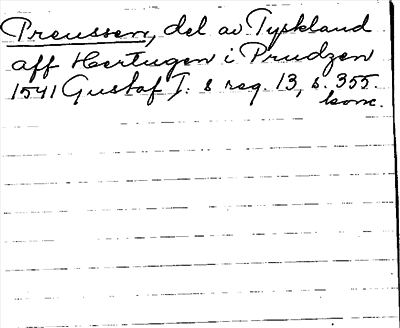 Preussen, del av Tyskland
aff Hertugen i Prudzen
1541 Gustaf I: s reg. 13, s. 355.
kom.